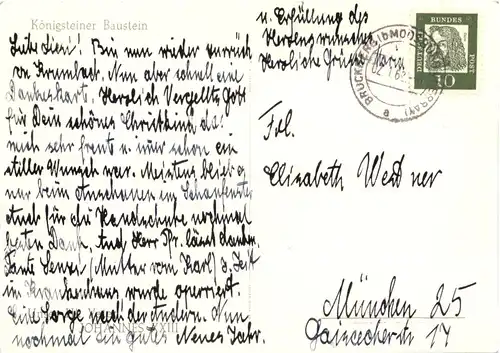 Königsteiner Baustein
Liebe Liesi! Bin nun wieder zurück
von Krumbach. Nun aber schnell eine
Dankeskarte. Herzlich Vergelts Gott
für Dein schönes Christkind das
mich sehr freute u. mir schon ein
stiller Wunsch war. Meistens blieb es
nur beim Anschauen im Schaufenster
Auch für die Handschuhe nochmal
Dank. Auch Herr Pfr. lässt danken.
Tante Senze (Mutter vom Karl) z. Zeit
im Krankenhaus wurde operiert.
Eine Sorge nach der Andern. Nun
nochmal ein gutes Neues Jahr.
JOHANNES XXIII
u. Erfüllung des
Herzenswunsches
Herzliche Grüsse
DEUTSCHE BUNDESPOST
10
Frl.
Elisabeth Westner
München 25
17